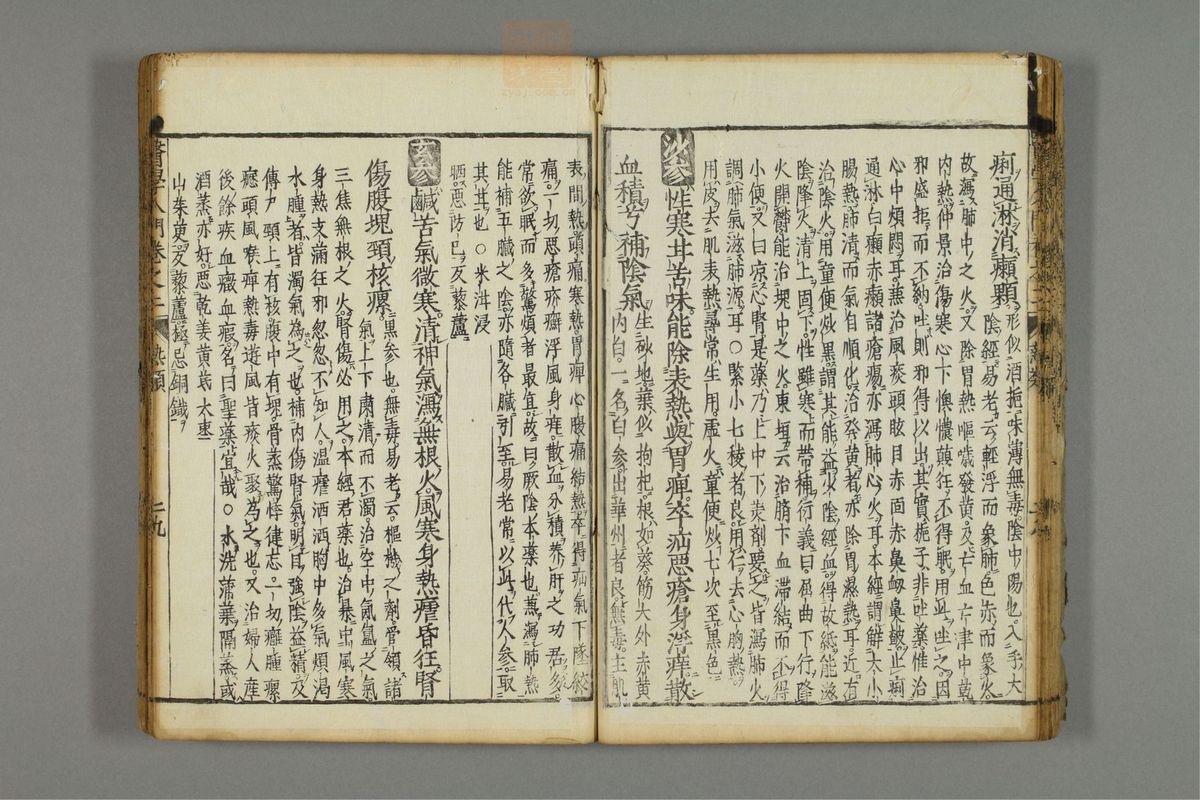 痢通淋消癩顆形似酒扼味薄無毒陰中陽也入手太
陰經易老云輕浮而象肺色赤而象火
故瀉肺中之火又除胃熱嘔噦發黃及亡血亡津中乾
內熱仲景治傷寒心下懊憹顛狂不得眠用此吐之因
邪盛拒而不納吐則邪得以出其實梔子非吐藥惟治
心中煩悶耳兼治風痰頭眩目赤面赤鼻衂鼻皶止痢
通淋白癩赤癩諸瘡瘍亦瀉肺心火耳本經謂解大小
腸熱肺清而氣自順化治發黃者亦除胃濕熱耳近有
治陰火用童便炒黑謂其能益少陰經血得故紙能滋
陰降火清上固下性雖寒而帶補衍義曰屈曲下行降
火開鬱能治塊中之火東垣云治臍下血滯結而不得
小便又曰凉心腎是藥乃上中下焦劑要之皆瀉肺火
調肺氣滋肺源耳○緊小七稜者良用仁去心胸熱
用皮去肌表熱尋常生用虛火童便炒七次至黑色
沙參性寒苷苦味能除表熱與胃痺卒疝惡瘡身浮痒散
血積兮補陰氣生砂地葉似拘杞根如葵筋大外赤黃
內白一名白參出華州者良無毒主肌
表間熱頭痛寒熱胃痺心腹痛結熱卒得疝氣下墜絞
痛一切惡瘡疥癬浮風身痒散血分積養肝之功君多
常欲眠而多驚煩者最宜故曰厥陰本藥也兼瀉肺熱
能補五臟之陰亦隨各臟引至易老常以此代人參取
其甘也○米泔浸
晒惡防己反藜蘆
玄參鹹苦氣微寒清神氣瀉無根火風寒身熱瘧昏狂腎
傷腹塊頸核瘰黑參也無毒易老云樞機之劑管領諸
氣上下肅清而不濁治空中氤氳之氣
三焦無根之火腎傷必用之本經君藥也治暴中風寒
身熱支滿狂邪忽忽不知人溫瘧洒洒胸中多氣煩渴
水腫者皆濁氣為之也補內傷腎氣明目強陰益精及
傳尸頸上有核腹中有塊骨蒸驚悸健忘一切癰腫瘰
癧頭風喉痺熱毒遊風皆痰火聚為之也又治婦人產
後餘疾血癥血瘕名曰聖藥宜哉○水洗蒲葉隔蒸或
酒蒸亦好惡乾姜黃芪大棗
山茱萸反藜蘆極忌銅鐵
醫學入門卷之二
熱類
二九